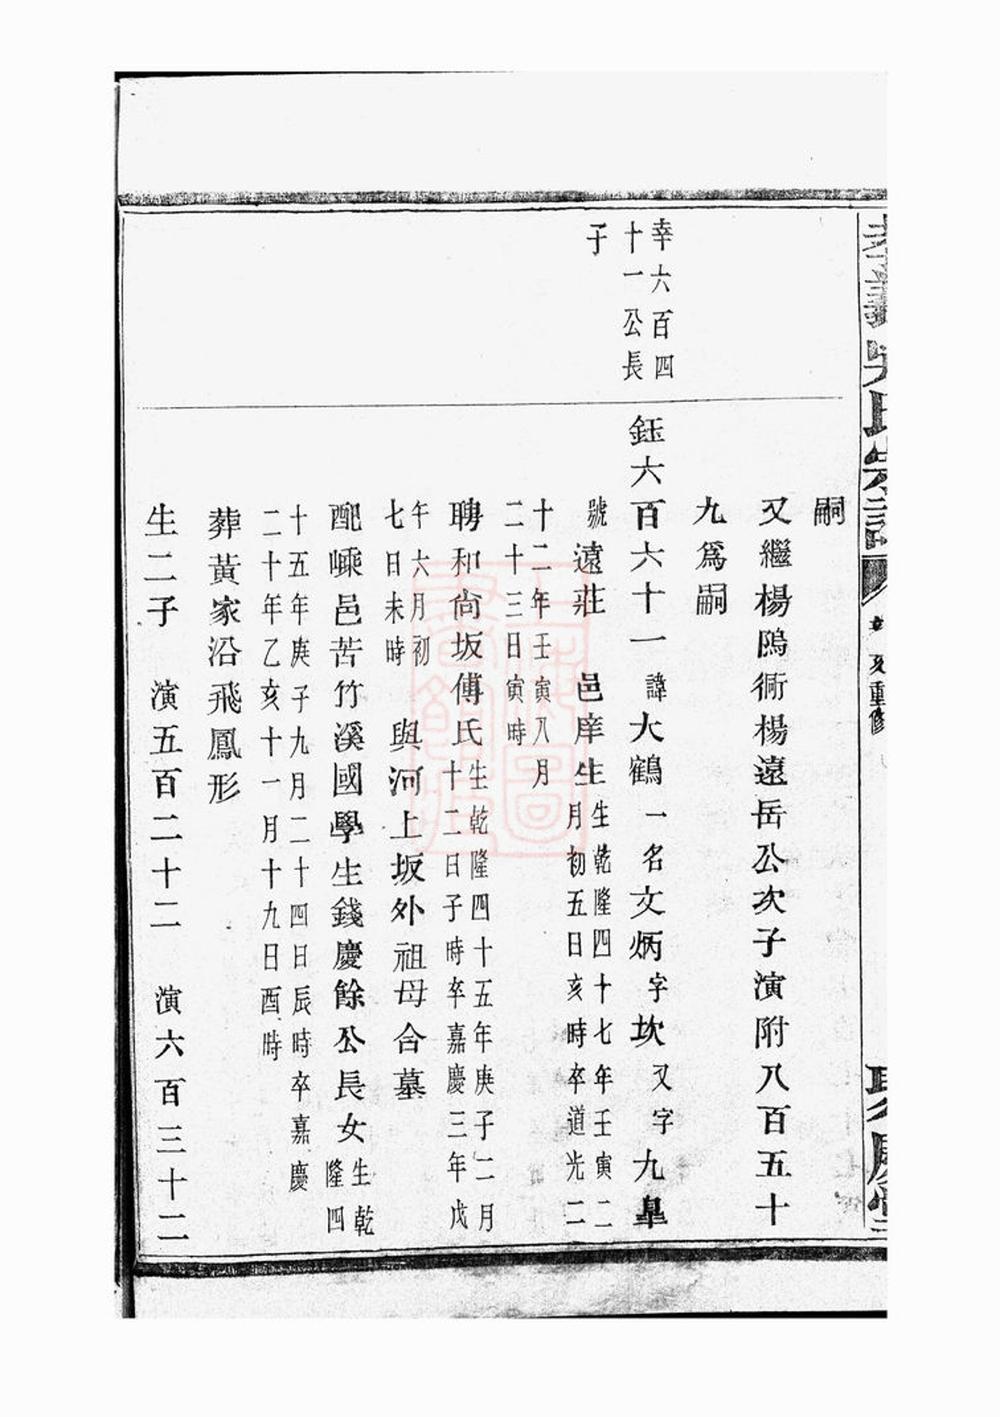 吳氏宗譜
重修
嗣
又繼楊隖衖楊遠岳公次子演附八百五十
九爲嗣
幸六百四
十一公長
子
鈺六百六十一諱大鶴一名文炳字坎又字九臯
號遠莊邑庠生生乾隆四十七年壬寅二
月初五日亥時卒道光二
十二年壬寅八月
二十三日寅時
聘和尙坂傅氏生乾隆四十五年庚子二月
十二日子時卒嘉慶三年戊
午六月初
七日未時與河上坂外祖母合墓
配嵊邑苦竹溪國學生錢慶餘公長女生乾
隆四
十五年庚子九月二十四日辰時卒嘉慶
二十年乙亥十一月十九日酉時
葬黃家沿飛鳳形
生二子演五百二十二演六百三十二